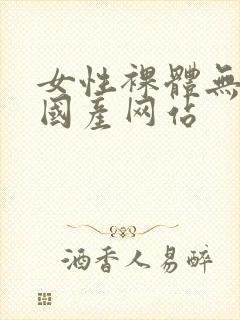 女性裸體無
國產网佔
酒香人易醉